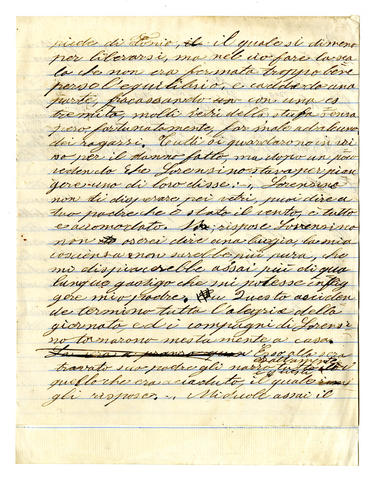 piede di Tonio, il quale si dimenò
per liberarsi, ma nel ciò fare la sca
la che non era fermata troppo bene
perse l'equilibrio, e cadde da una
parte, fracassando con una es
tremità, molti vetri della stufa senza
però fortunatamente, far male ad alcuno
dei ragazzi. Tutti si guardarono in vi
so per il danno fatto, ma dopo un poco
vedendo che Lorenzino stava per pian
gere uno di loro disse: „ Lorenzino
non ti disperare pei vetri, puoi dire a
tuo padre che è stato il vento, e tutto
è accomodato. „ No, rispose Lorenzino
non oserei dire una bugia, la mia
coscienza non sarebbe più pura, che
mi dispiacerebbe assai più di qua
lunque gastigo che mi potesse inflig
gere mio padre. „ Questo acciden
te terminò tutta l'alegria della
giornata ed i compagni di Lorenzi
no tornarono mestamente a casa.
sera
trovato suo padre gli narrò esattamente tutto
quello che era accaduto, il quale
gli rispose. „ Mi duole assai il